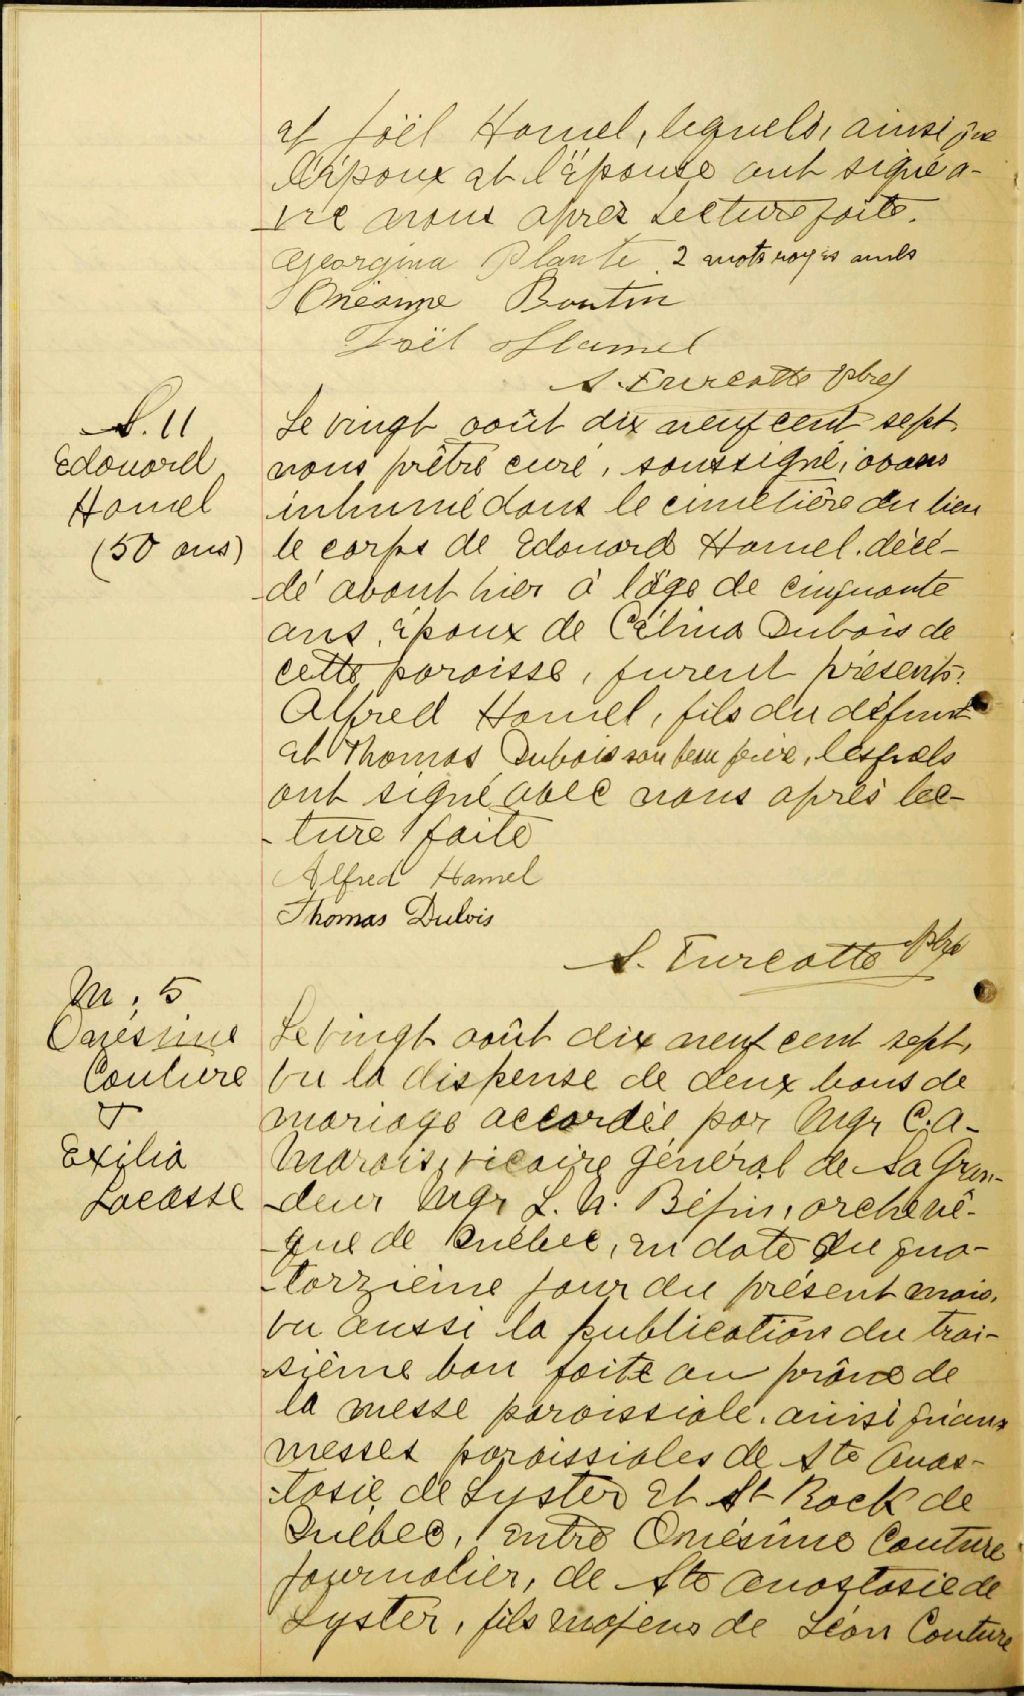 et Joël Hamel, lequels, ainsi que
l'époux et l'épouse ont signé a-
vec nous après lecture faite.
Georgina Plante 2 mots rayés nuls
Onésime Boutin
Joël Hamel
S. Turcotte ptre
S. 11
Edouard
Hamel
(50 ans)
Le vingt août dix neuf cent sept,
nous prêtre curé, soussigné, avons
inhumé dans le cimetière du lieu
le corps de Edouard Hamel, décé-
dé avant hier à l'âge de cinquante
ans, époux de Célina Dubois de
cette paroisse, furent présents:
Alfred Hamel, fils du défunt
et Thomas Dubois son beau frère, lesquels
ont signé avec nous après lec-
-ture faite
Alfred Hamel
Thomas Dubois
S. Turcotte ptre
M. 5
Onésime
Couture
&
Exilia
Lacasse
Le vingt août dix neuf cent sept,
vu la dispense de deux bans de
mariage accordée par Mgr C. A.
Marois, vicaire général de Sa Gran-
-deur Mgr L. N. Bégin, archevê-
-que de Québec, en date du qua-
-torzième jour du présent mois,
vu aussi la publication du troi-
-sième ban faite au prône de
la messe paroissiale, ainsi qu'aux
messes paroissiales de Ste Anas-
-tasie de Lyster et St Rock de
Québec, entre Onésime Couture
journalier, de Ste Anastasie de
Lyster, fils majeur de Léon Couture